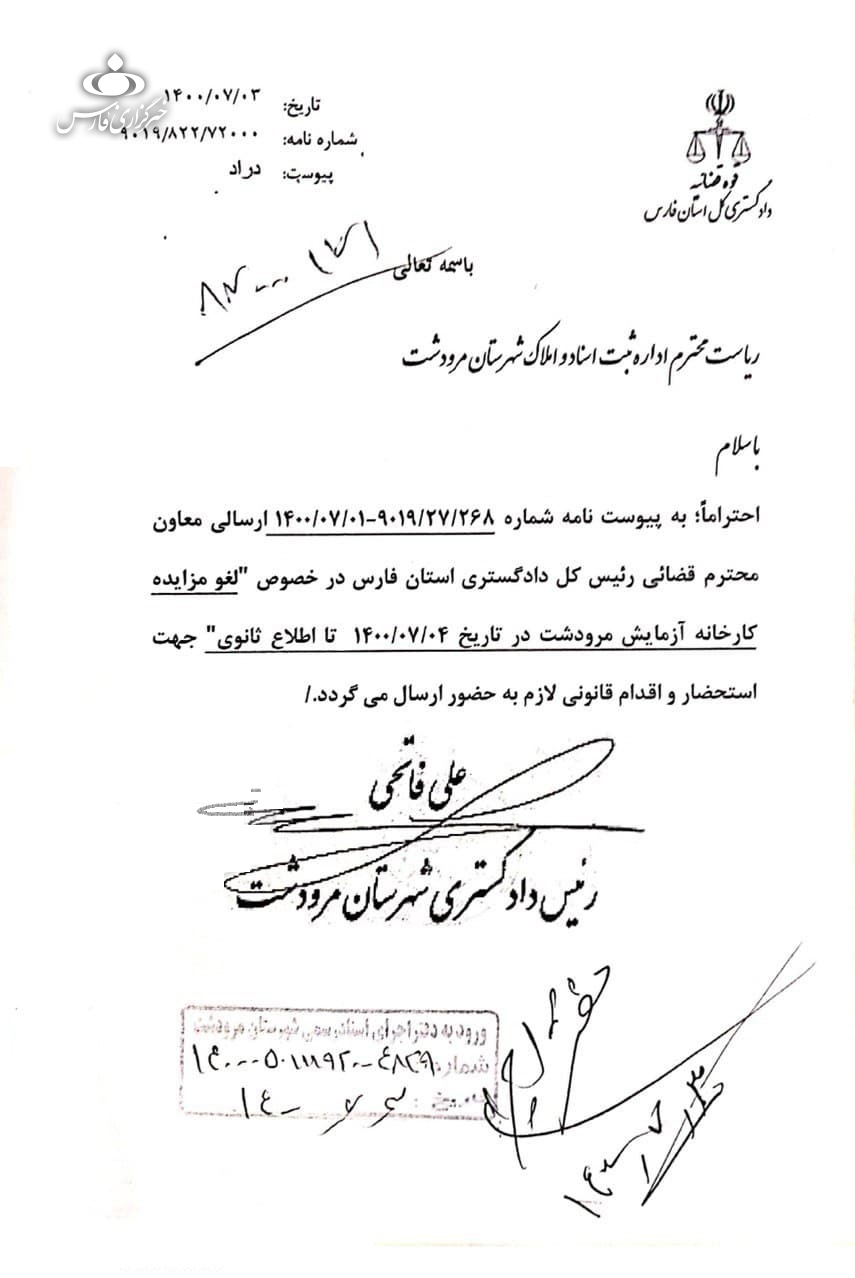 خبرگزاری فارس
قوه قضائیه
دادگستری کل استان فارس
تاریخ: ۱۴۰۰/۰۷/۰۳
شماره نامه: ۹۰۱۹/۸۲۲/۷۲۰۰۰
پیوست: دراد
باسمه تعالی
ریاست محترم اداره ثبت اسناد و املاک شهرستان مرودشت
باسلام
احتراماً؛ به پیوست نامه شماره ۹۰۱۹/۲۷/۲۶۸-۱۴۰۰/۰۷/۰۱ ارسالی معاون
محترم قضائی رئیس کل دادگستری استان فارس در خصوص "لغو مزایده
کارخانه آزمایش مرودشت در تاریخ ۱۴۰۰/۰۷/۰۴ تا اطلاع ثانوی" جهت
استحضار و اقدام قانونی لازم به حضور ارسال می گردد./
علی فاتحی
رئیس دادگستری شهرستان مرودشت
ورود به دفتر اجرای اسناد رسمی شهرستان مرودشت
شماره:
تاریخ: